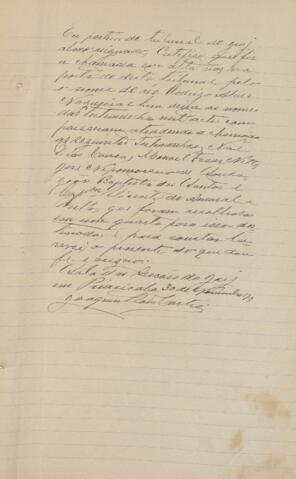 Eu porteiro do tribunal do jury
abaixo assignado, Certifico que fiz
a chamada em alta voz na
porta do dito tribunal pelo
o nome do réo Rodrigo Alves
e Nogueira e bem assim os nomes
das testemunhas neste acto com
pareceram, attendendo a chamada
as seguintes
Dias Correa, Manoel
José Nepomoceno de Souza,
João Baptista dos Santos e
Capm Vicente do Amaral
Mello, que foram recolhidas
em um quarto para isso des
tinado, e para constar la
vrei o presente do que dou
fé, e assigno.
Sala das Sessões do jury
em Piracicaba 30 de
Joaquim